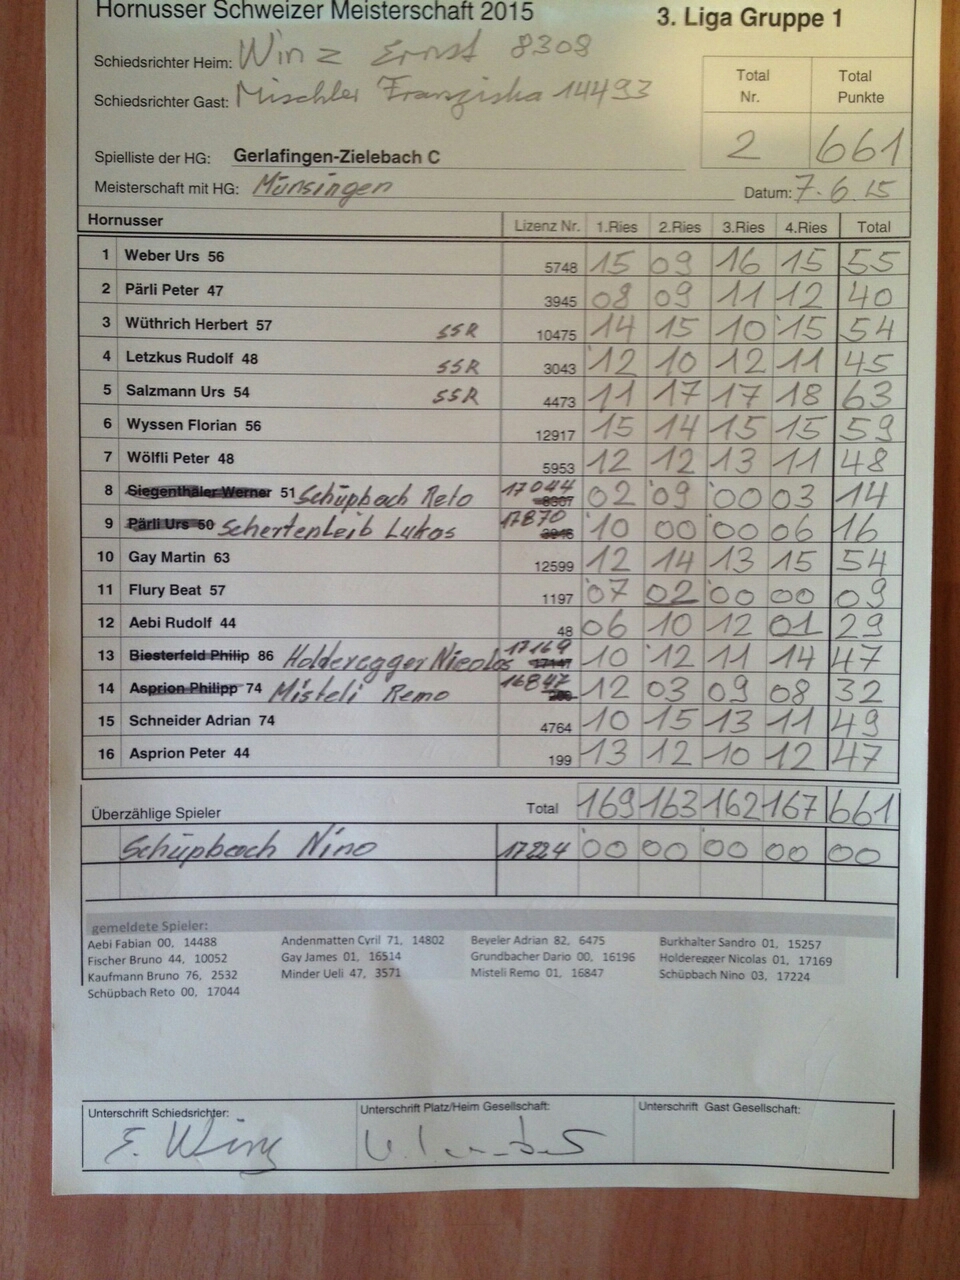 Hornusser Schweizer Meisterschaft 2015 3. Liga Gruppe 1
Schiedsrichter Heim: Winz Ernst 8308
Schiedsrichter Gast: Mischler Franziska 14493
Total Nr. Total Punkte
2 661
Spielliste der HG: Gerlafingen-Zielebach C
Meisterschaft mit HG: Münsingen Datum: 7.6.15
Hornusser Lizenz Nr. 1.Ries 2.Ries 3.Ries 4.Ries Total
1 Weber Urs 56 5748 15 09 16 15 55
2 Pärli Peter 47 3945 08 09 11 12 40
3 Wüthrich Herbert 57 SSR 10475 14 15 10 15 54
4 Letzkus Rudolf 48 SSR 3043 12 10 12 11 45
5 Salzmann Urs 54 SSR 4473 11 17 17 18 63
6 Wyssen Florian 56 12917 15 14 15 15 59
7 Wölfli Peter 48 5953 12 12 13 11 48
8 Siegenthaler Werner 51 Schüpbach Reto 17044 02 09 00 03 14
9 Pärli Urs 50 Schertenleib Lukas 17870 10 00 00 06 16
10 Gay Martin 63 12599 12 14 13 15 54
11 Flury Beat 57 1197 07 02 00 00 09
12 Aebi Rudolf 44 48 06 10 12 01 29
13 Biesterfeld Philip 86 Holderegger Nicolas 17169 17147 10 12 11 14 47
14 Asprion Philipp 74 Misteli Remo 16847 12 03 09 08 32
15 Schneider Adrian 74 4764 10 15 13 11 49
16 Asprion Peter 44 199 13 12 10 12 47
Überzählige Spieler Total 169 163 162 167 661
Schüpbach Nino 17224 00 00 00 00 00
gemeldete Spieler:
Aebi Fabian 00, 14488 Andenmatten Cyril 71, 14802 Beyeler Adrian 82, 6475 Burkhalter Sandro 01, 15257
Fischer Bruno 44, 10052 Gay James 01, 16514 Grundbacher Dario 00, 16196 Holderegger Nicolas 01, 17169
Kaufmann Bruno 76, 2532 Minder Ueli 47, 3571 Misteli Remo 01, 16847 Schüpbach Nino 03, 17224
Schüpbach Reto 00, 17044
Unterschrift Schiedsrichter: Unterschrift Platz/Heim Gesellschaft: Unterschrift Gast Gesellschaft:
E. Winz